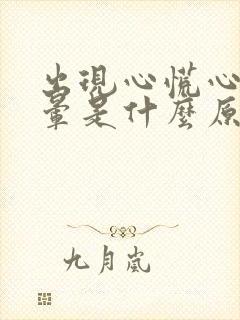 出現心慌心
暈是什麼原
九月嵐